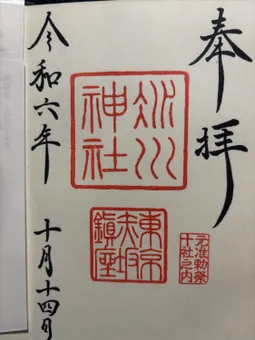 奉拝
氷川神社
元准勅祭十社之内
東京赤坂鎮座
令和六年 十月十四日